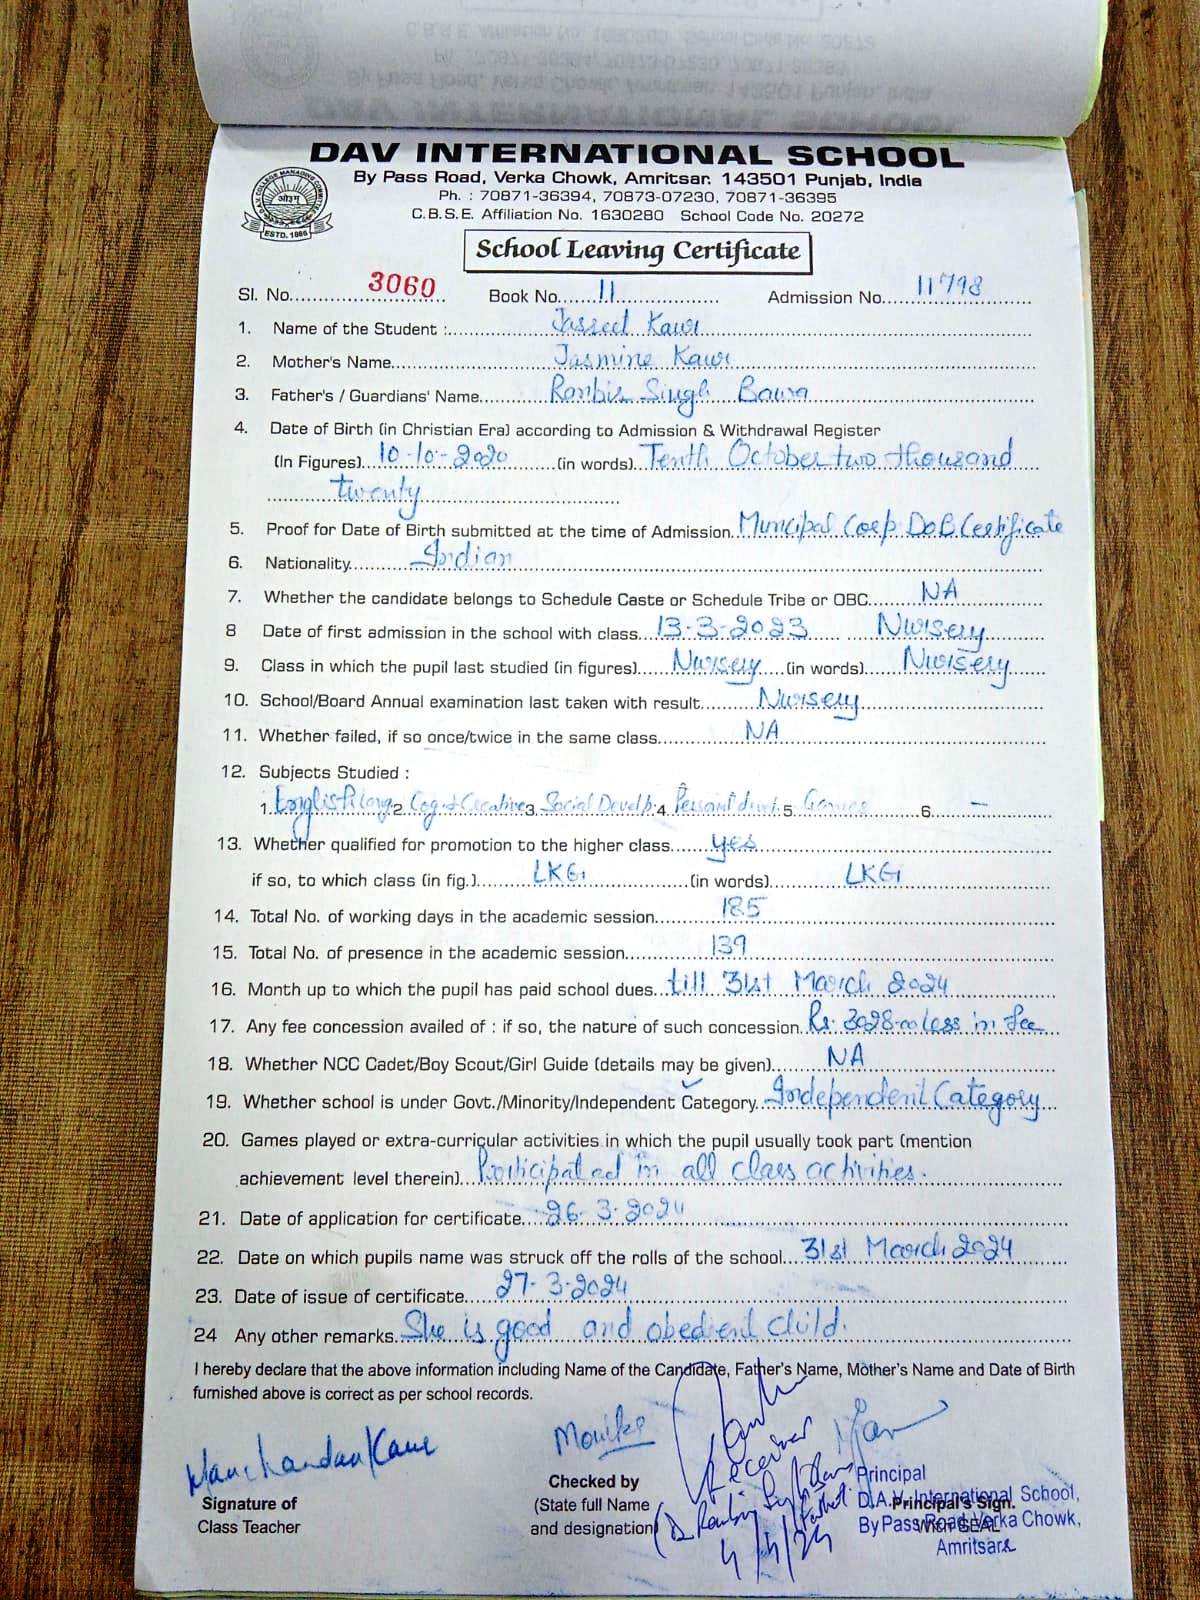 DAV INTERNATIONAL SCHOOL
By Pass Road, Verka Chowk, Amritsar. 143501 Punjab, India
Ph. : 70871-36394, 70873-07230, 70871-36395
C.B.S.E. Affiliation No. 1630280 School Code No. 20272
ओ३म्
ESTD. 1886
School Leaving Certificate
Sl. No. 3060 Book No. 11 Admission No. 11798
1. Name of the Student : Kaur
2. Mother's Name Jasmine Kaur
3. Father's / Guardians' Name Ranbir Singh Bawa
4. Date of Birth (in Christian Era) according to Admission & Withdrawal Register
(In Figures) 10-10-2020 (in words) Tenth October two thousand
twenty
5. Proof for Date of Birth submitted at the time of Admission Municipal Corp DoB Certificate
6. Nationality Indian
7. Whether the candidate belongs to Schedule Caste or Schedule Tribe or OBC NA
8 Date of first admission in the school with class 13-3-2023 Nursery
9. Class in which the pupil last studied (in figures) Nursery (in words) Nursery
10. School/Board Annual examination last taken with result Nursery
11. Whether failed, if so once/twice in the same class NA
12. Subjects Studied :
1. 2. Cog + Creative 3. Social Develp. 4 5. Games 6. —
13. Whether qualified for promotion to the higher class yes
if so, to which class (in fig.) LKG (in words) LKG
14. Total No. of working days in the academic session 185
15. Total No. of presence in the academic session 139
16. Month up to which the pupil has paid school dues till 31st March 2024
17. Any fee concession availed of : if so, the nature of such concession Rs. 3028-00 less in fee
18. Whether NCC Cadet/Boy Scout/Girl Guide (details may be given) NA
19. Whether school is under Govt./Minority/Independent Category Independent Category
20. Games played or extra-curricular activities in which the pupil usually took part (mention
achievement level therein) Participated in all class activities.
21. Date of application for certificate 26-3-2024
22. Date on which pupils name was struck off the rolls of the school 31st March 2024
23. Date of issue of certificate 27-3-2024
24 Any other remarks She is good and obedient child.
I hereby declare that the above information including Name of the Candidate, Father's Name, Mother's Name and Date of Birth
furnished above is correct as per school records.
Monika
Receiver
Signature of
Class Teacher
Checked by
(State full Name
and designation)
4/4/24
Principal
D.A.V. International School,
By Pass Road, Verka Chowk,
Amritsar
Principal's Sign.
With SEAL